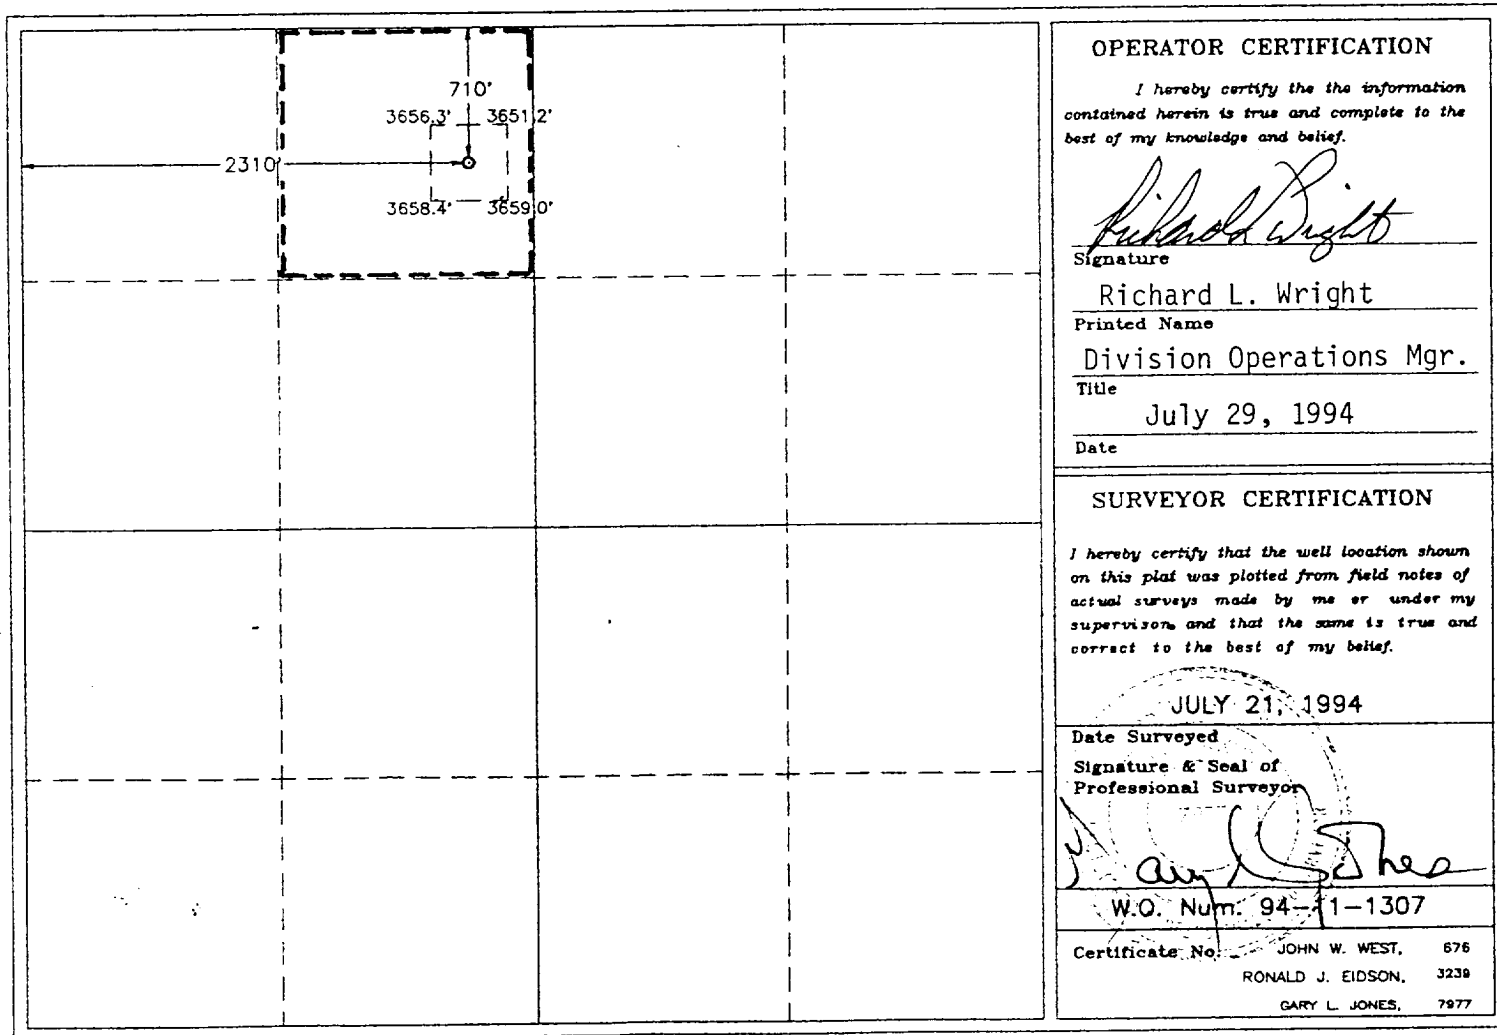 710'
3656.3' 3651.2'
2310'
3658.4' 3659.0'
OPERATOR CERTIFICATION
I hereby certify the the information
contained herein is true and complete to the
best of my knowledge and belief.
Richard L. Wright
Signature
Richard L. Wright
Printed Name
Division Operations Mgr.
Title
July 29, 1994
Date
SURVEYOR CERTIFICATION
I hereby certify that the well location shown
on this plat was plotted from field notes of
actual surveys made by me or under my
supervison, and that the same is true and
correct to the best of my belief.
JULY 21, 1994
Date Surveyed
Signature & Seal of
Professional Surveyor
Gary L Jones
W.O. Num. 94-11-1307
Certificate No. JOHN W. WEST, 676
RONALD J. EIDSON, 3239
GARY L. JONES, 7977